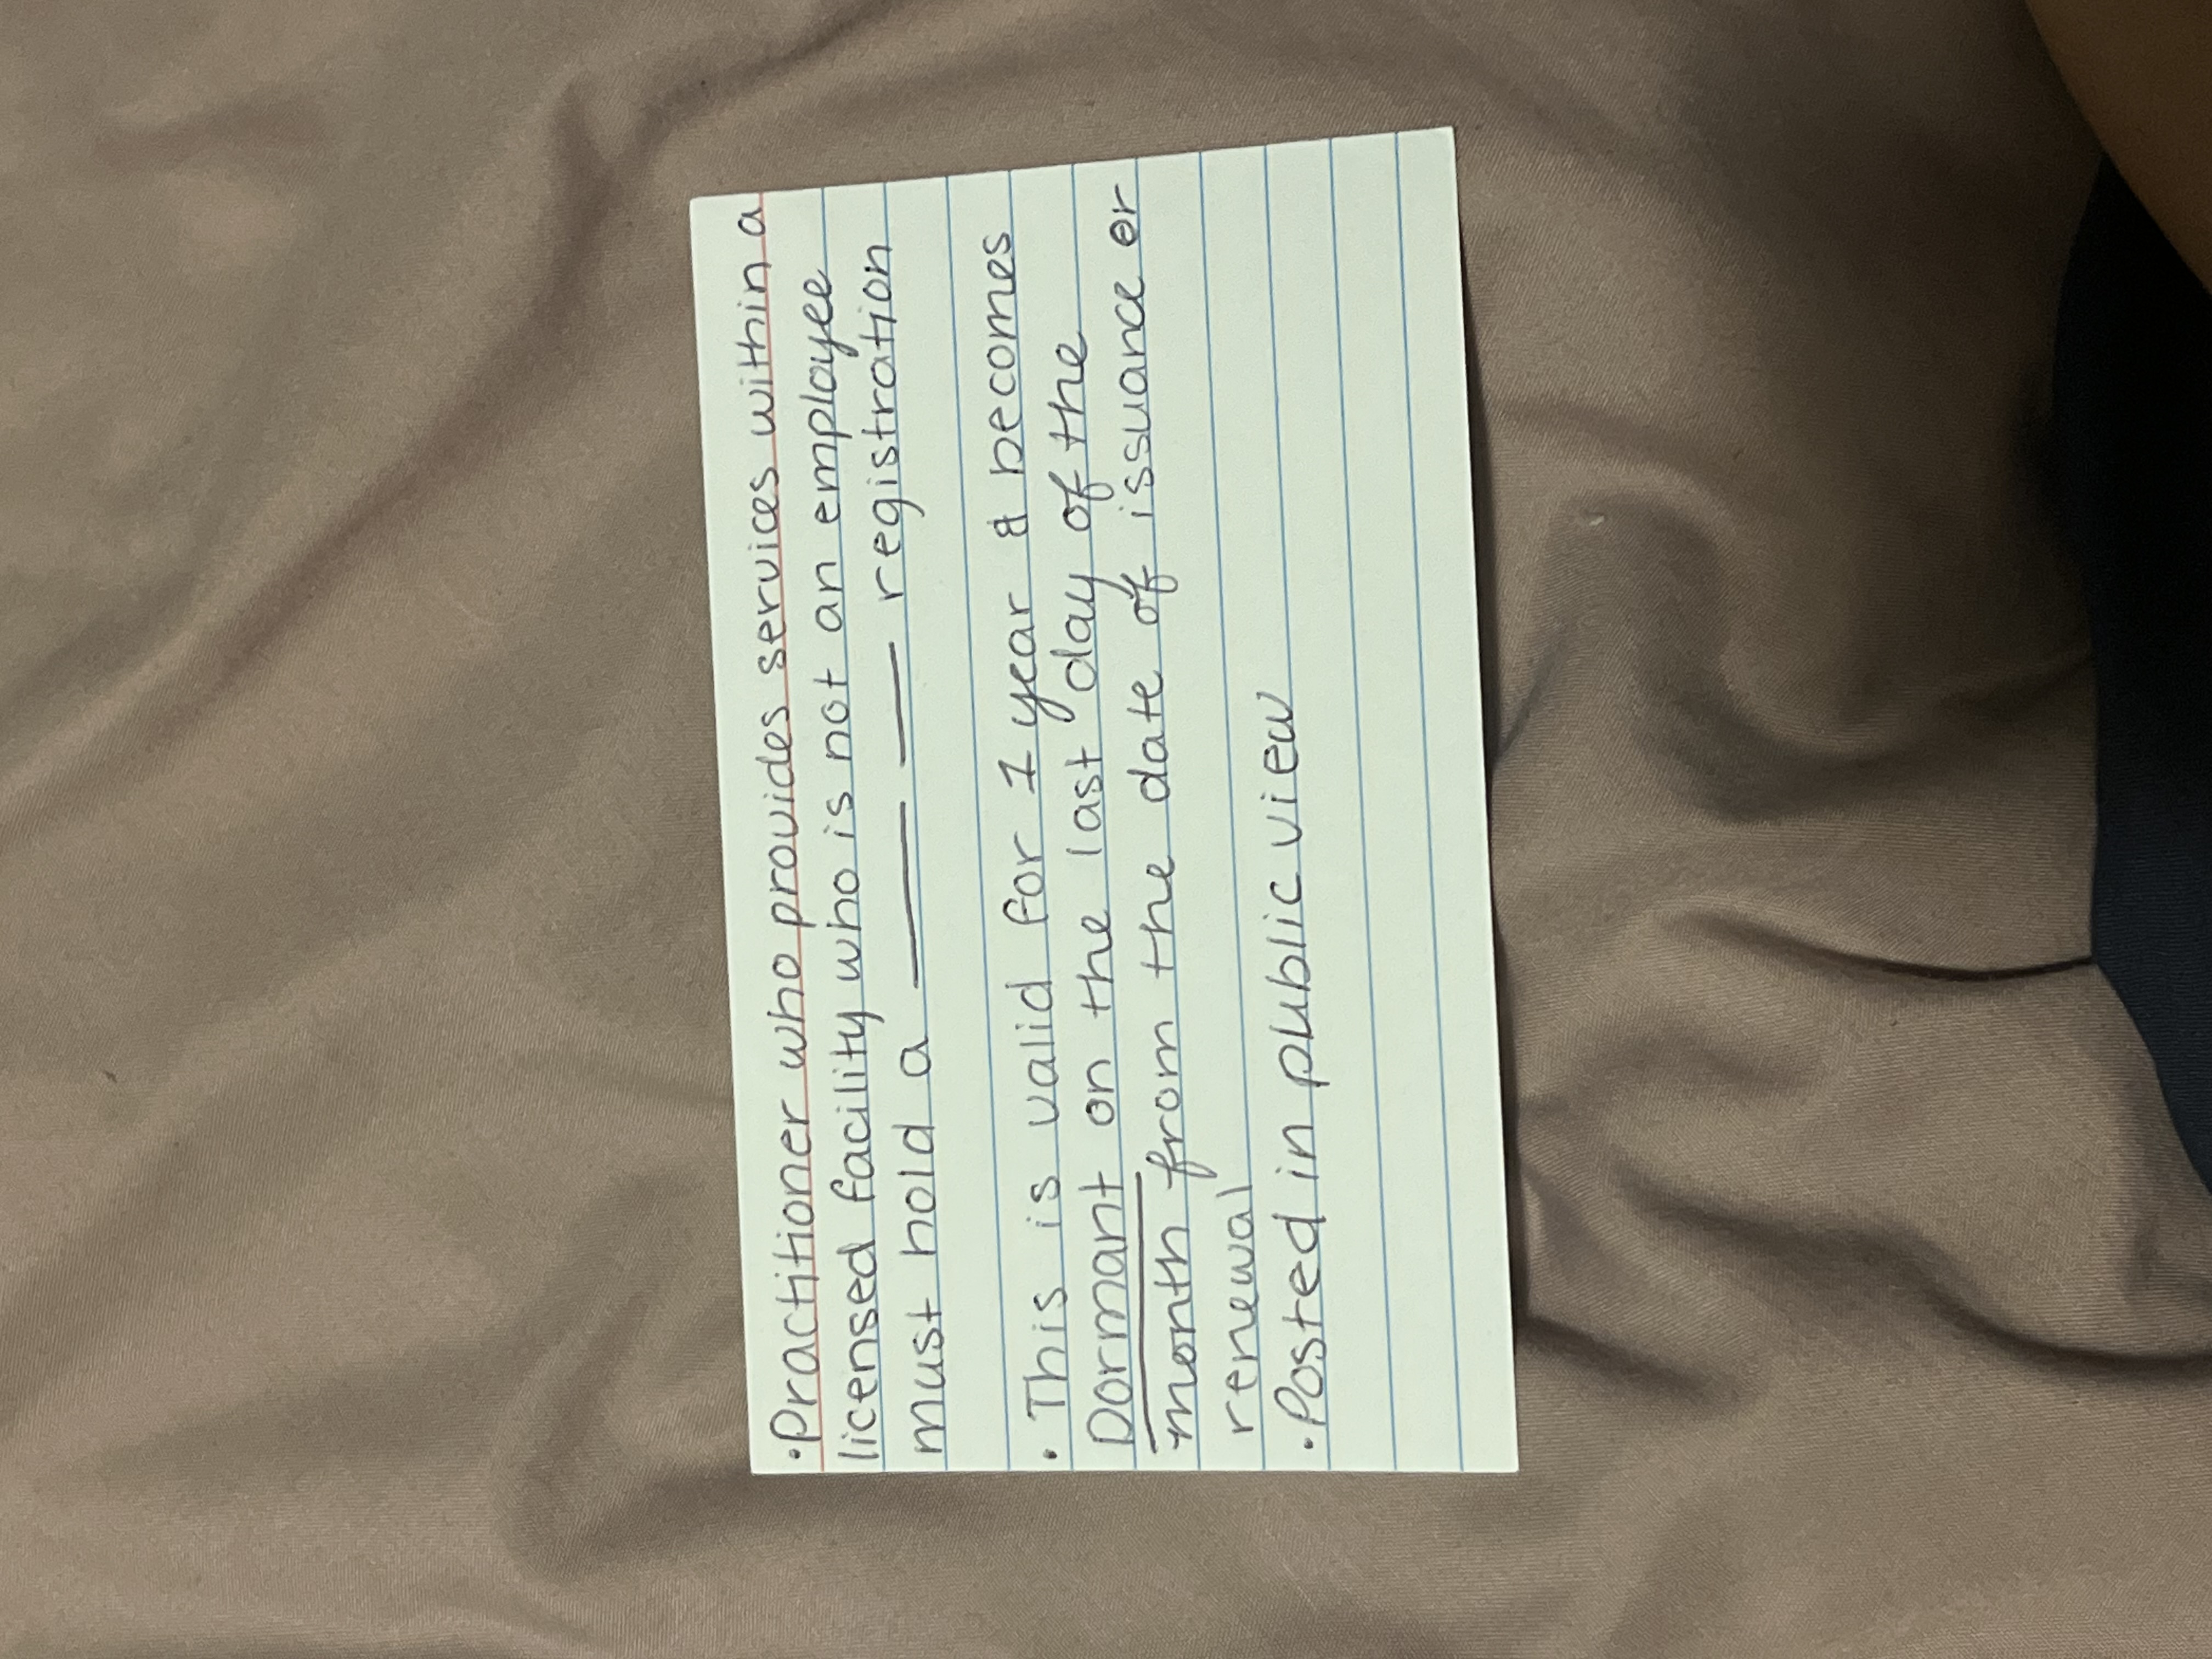 ·Practitioner who provides services within a
licensed facility who is not an employee
must hold a ___ ___ registration
· This is valid for 1 year & becomes
Dormant on the last day of the
month from the date of issuance or
renewal
·Posted in public view